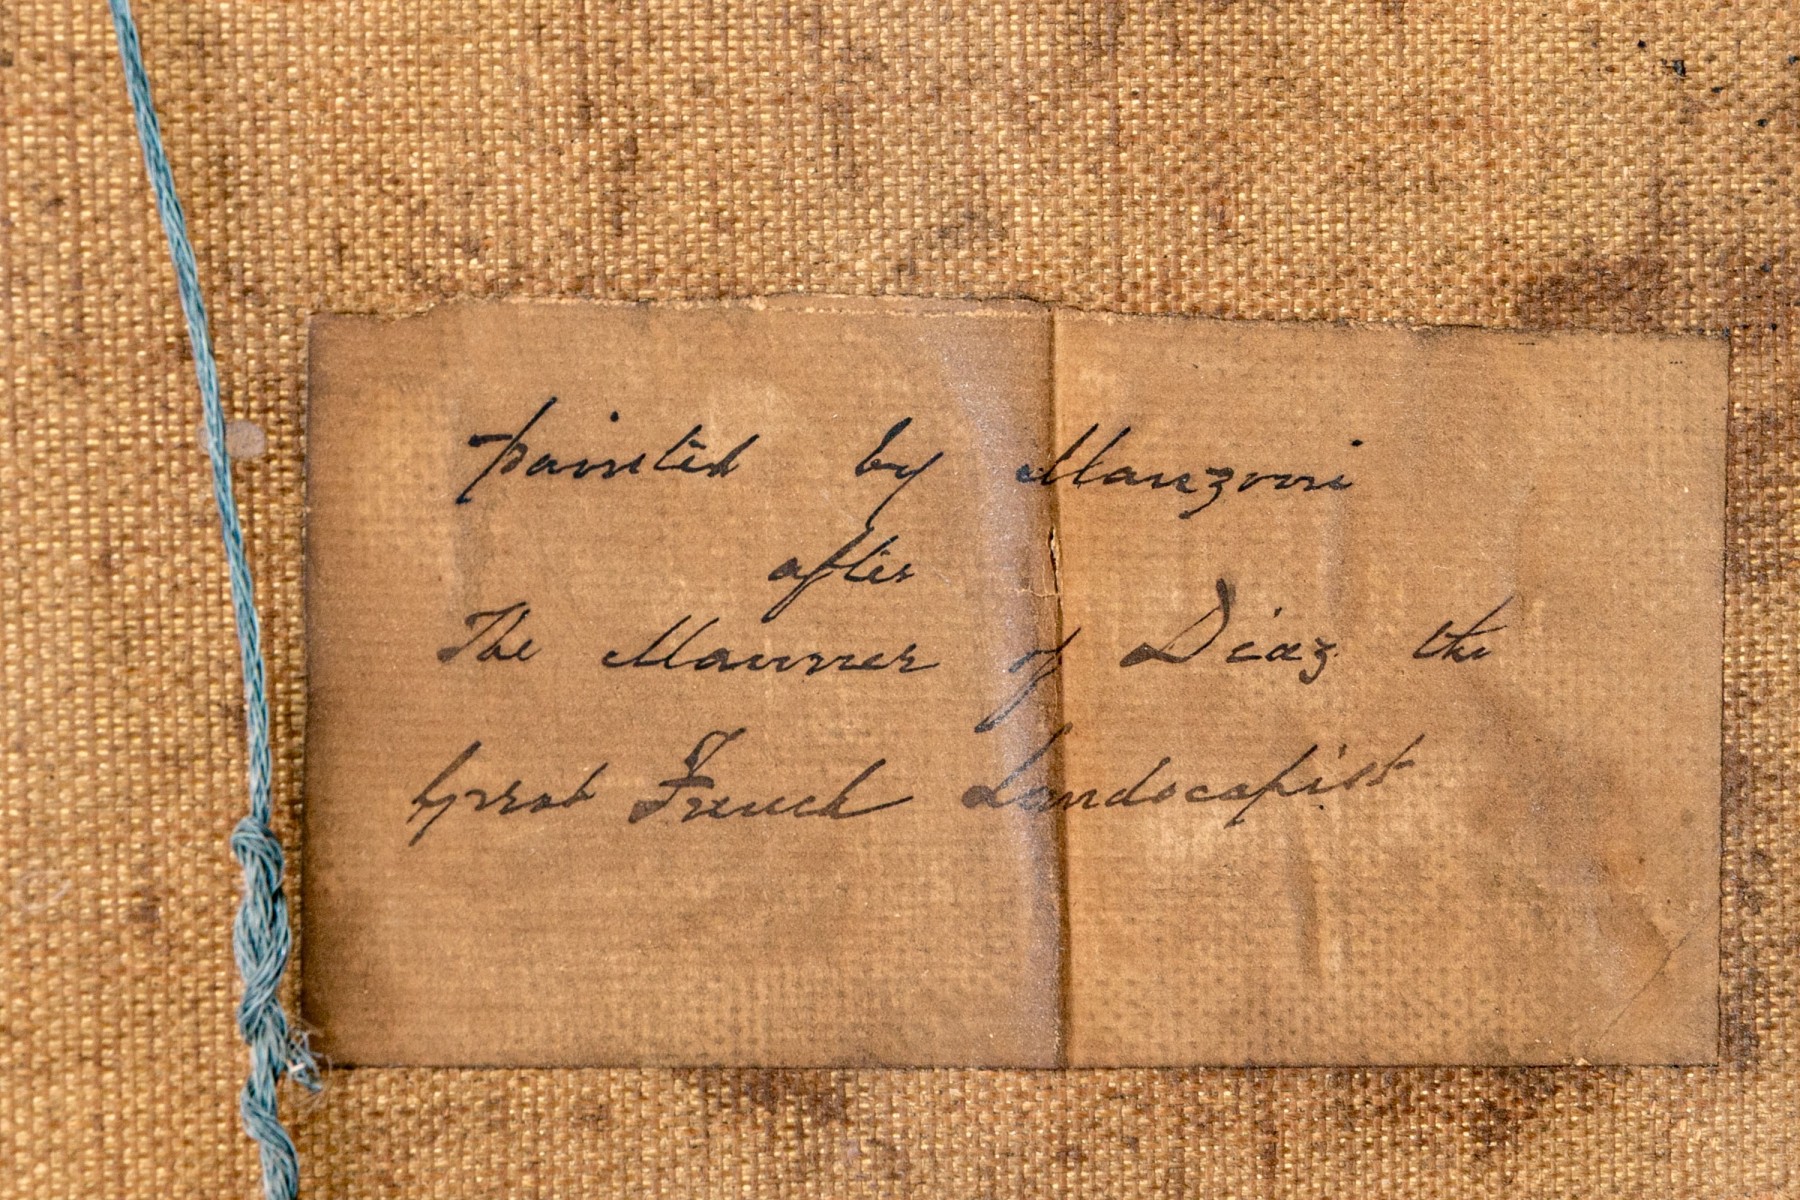 painted by Manzoni
after
The Manner of Diaz the
Great French Landscapist